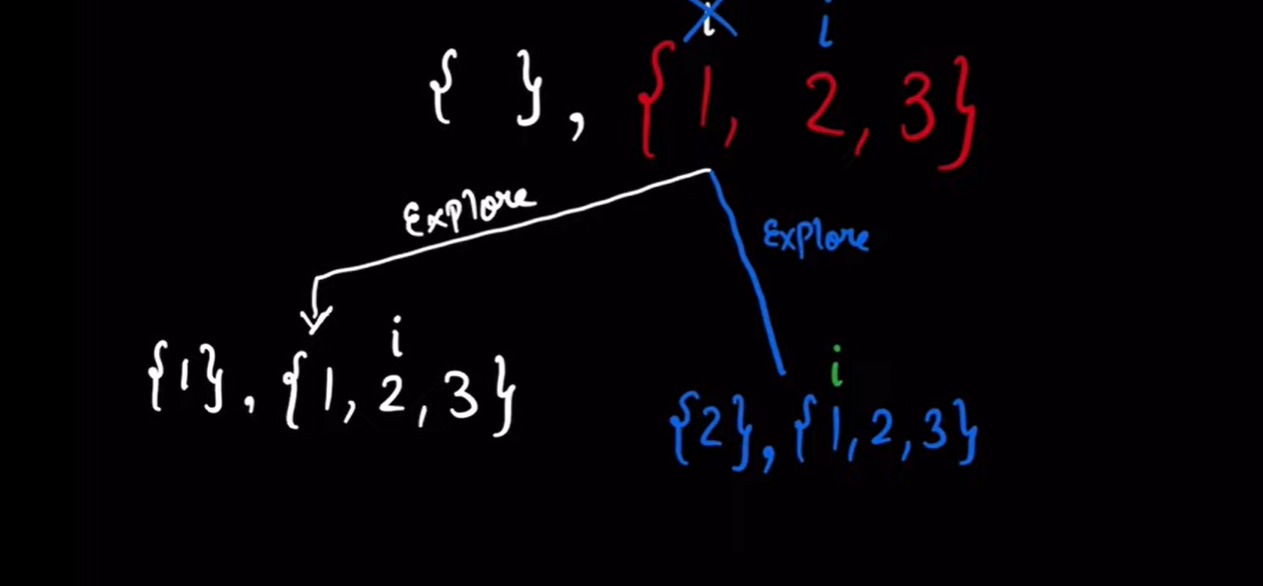 i i
{ }, {1, 2, 3}
Explore
Explore
i i
{1}, {1, 2, 3}
{2}, {1, 2, 3}